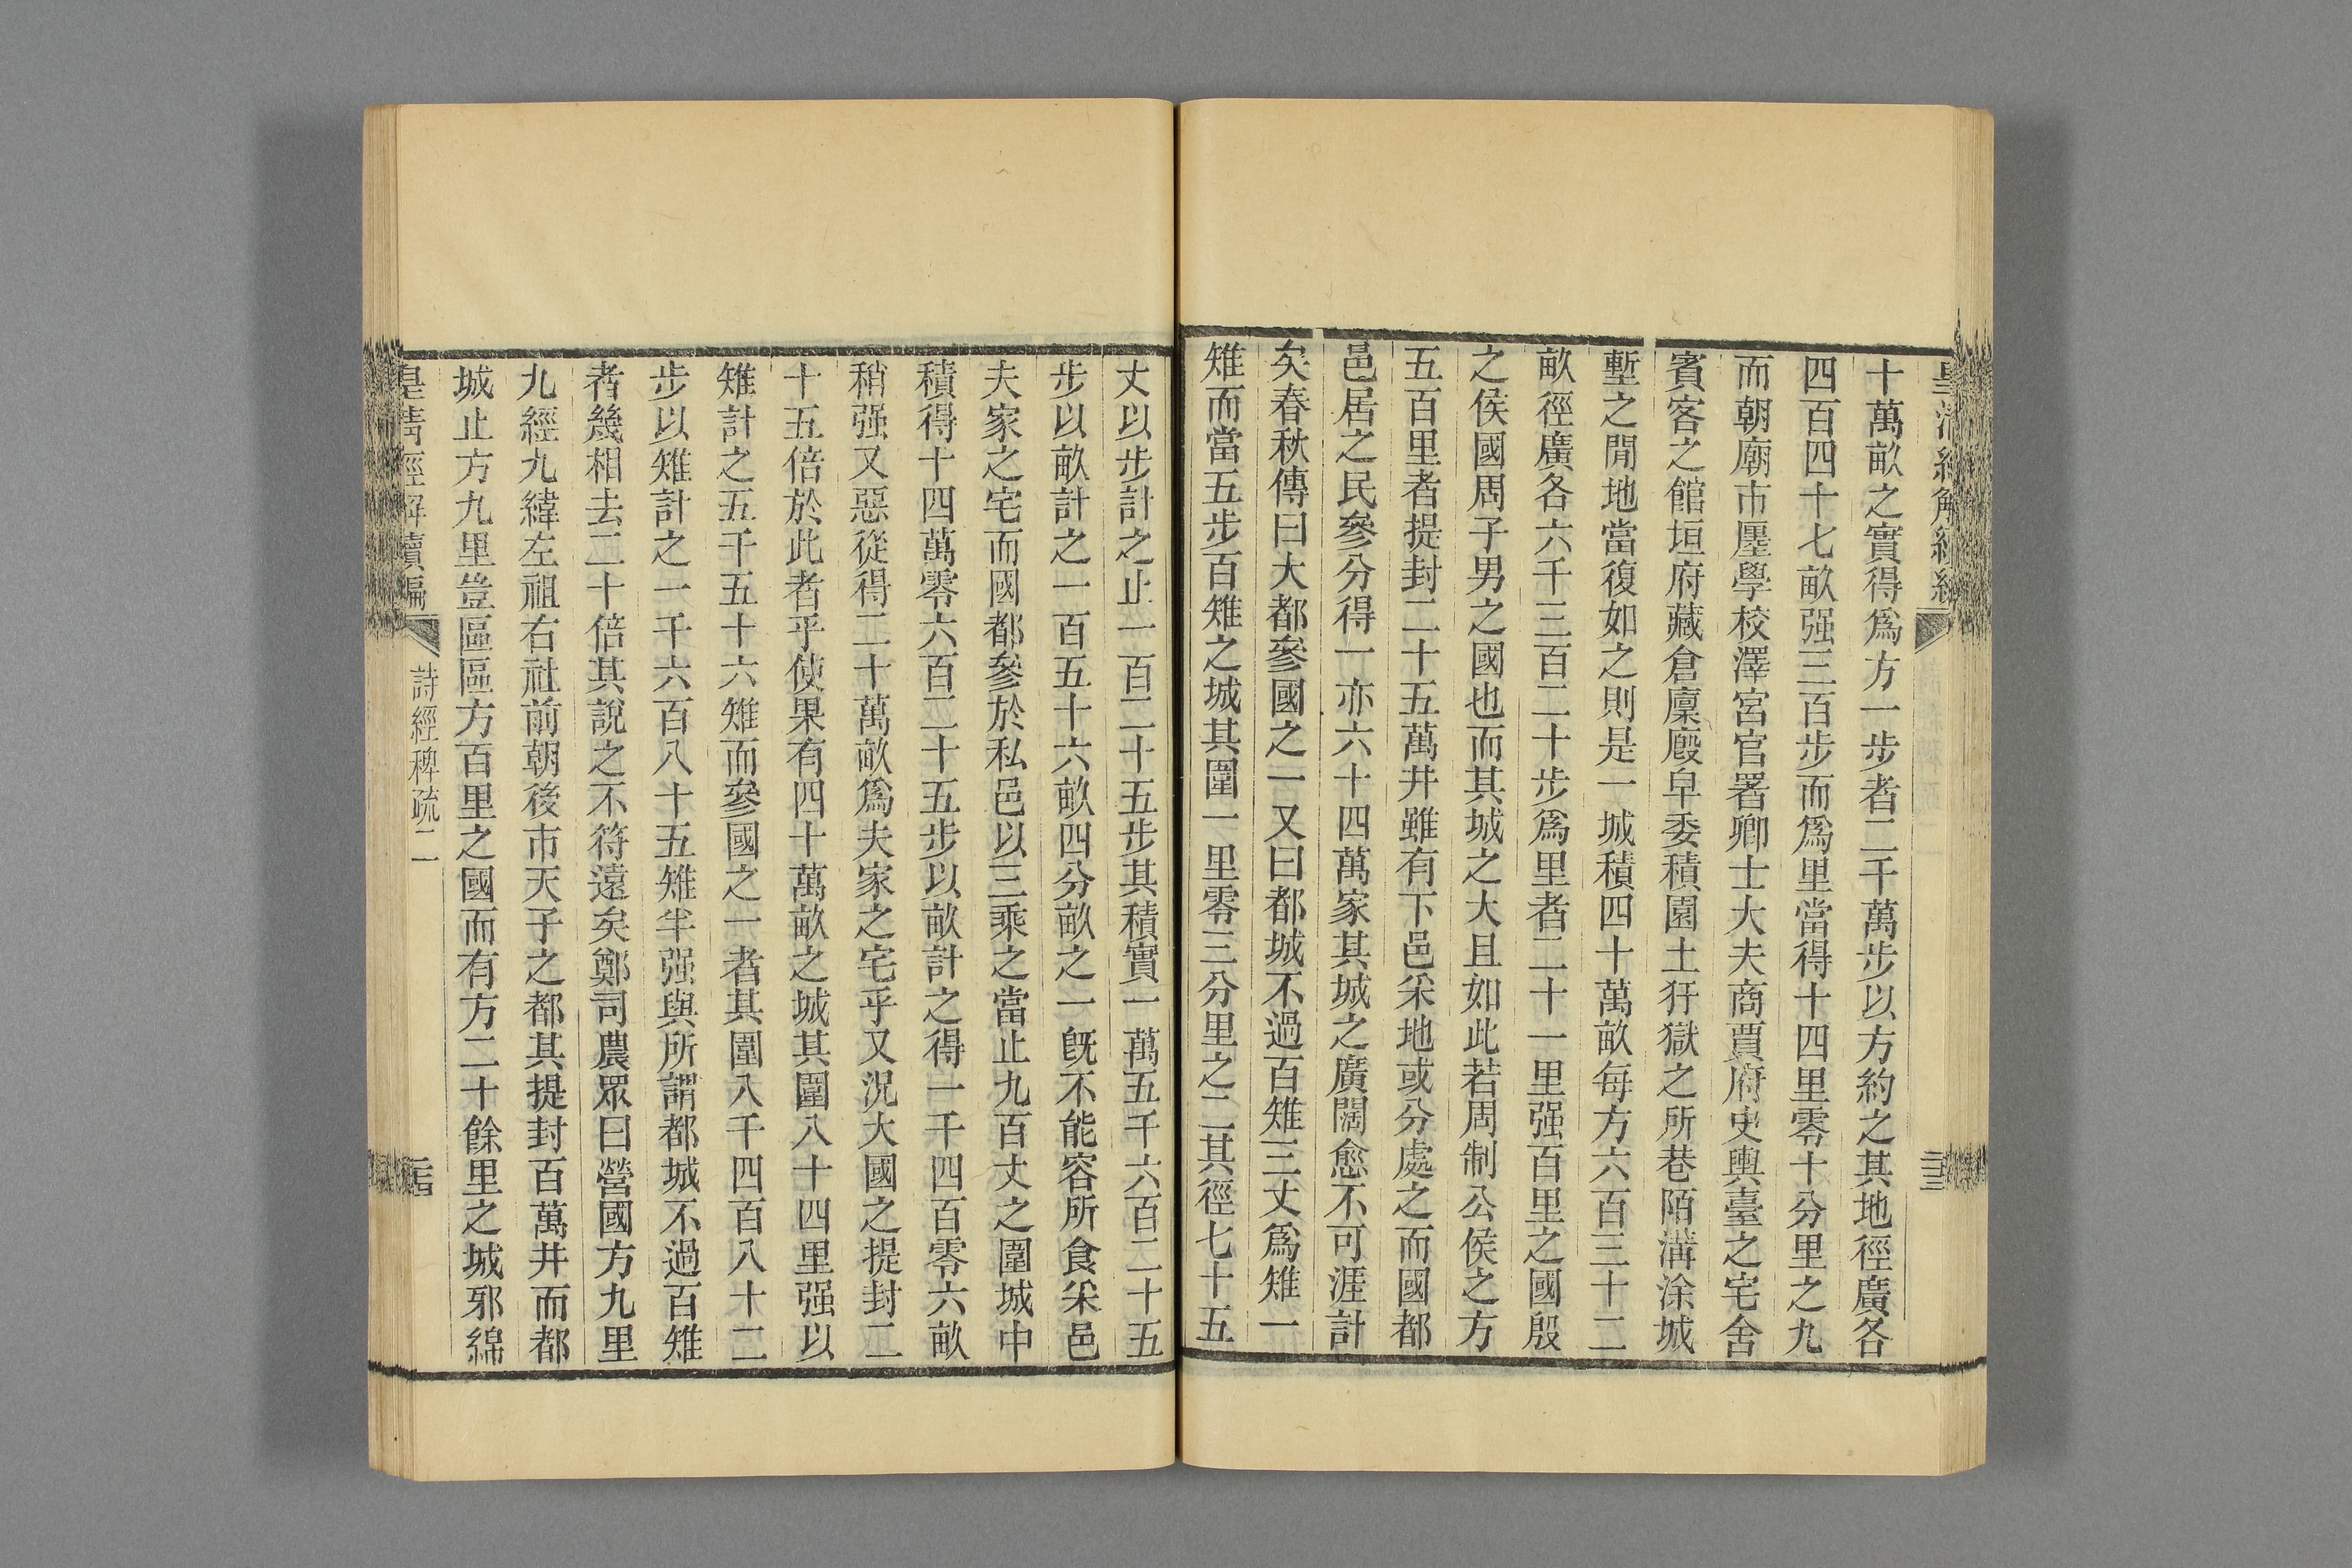 皇清經解續編
十萬畝之實得爲方一步者二千萬步以方約之其地徑廣各
四百四十七畝强三百步而爲里當得十四里零十分里之九
而朝廟市廛學校澤宮官署卿士大夫商賈府史輿臺之宅舍
賓客之館垣府藏倉廩廄皁委積園土犴獄之所巷陌溝涂城
塹之閒地當復如之則是一城積四十萬畝每方六百三十二
畝徑廣各六千三百二十步爲里者二十一里强百里之國殷
之侯國周子男之國也而其城之大且如此若周制公侯之方
五百里者提封二十五萬井雖有下邑采地或分處之而國都
邑居之民參分得一亦六十四萬家其城之廣闊愈不可涯計
矣春秋傳曰大都參國之一又曰都城不過百雉三丈爲雉一
雉而當五步百雉之城其圍一里零三分里之二其徑七十五
丈以步計之止一百二十五步其積實一萬五千六百二十五
步以畝計之一百五十六畝四分畝之一旣不能容所食采邑
夫家之宅而國都參於私邑以三乘之當止九百丈之圍城中
積得十四萬零六百二十五步以畝計之得一千四百零六畝
稍强又惡從得二十萬畝爲夫家之宅乎又況大國之提封二
十五倍於此者乎使果有四十萬畝之城其圍八十四里强以
雉計之五千五十六雉而參國之一者其圍八千四百八十二
步以雉計之一千六百八十五雉半强與所謂都城不過百雉
者幾相去二十倍其說之不符遠矣鄭司農眾曰營國方九里
九經九緯左祖右社前朝後市天子之都其提封百萬井而都
城止方九里豈區區方百里之國而有方二十餘里之城邪綿
皇清經解續編
詩經稗疏二